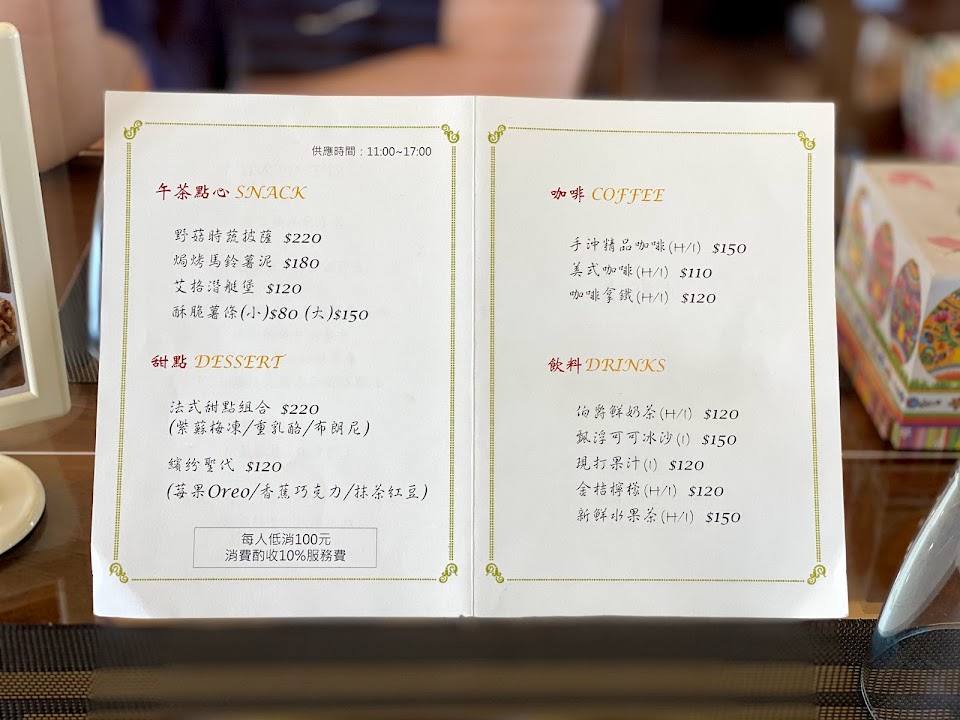 供應時間：11:00~17:00
午茶點心 SNACK
野菇時蔬披薩 $220
焗烤馬鈴薯泥 $180
艾格潛艇堡 $120
酥脆薯條(小)$80 (大)$150
甜點 DESSERT
法式甜點組合 $220
(紫蘇梅凍/重乳酪/布朗尼)
繽紛聖代 $120
(莓果Oreo/香蕉巧克力/抹茶紅豆)
每人低消100元
消費酌收10%服務費
咖啡 COFFEE
手沖精品咖啡(H/I) $150
美式咖啡(H/I) $110
咖啡拿鐵(H/I) $120
飲料DRINKS
伯爵鮮奶茶(H/I) $120
飄浮可可冰沙(I) $150
現打果汁(I) $120
金桔檸檬(H/I) $120
新鮮水果茶(H/I) $150